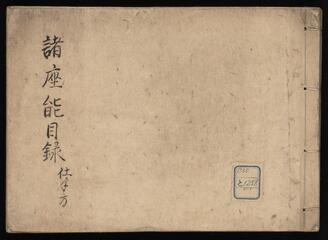 諸座能目録
仕手方